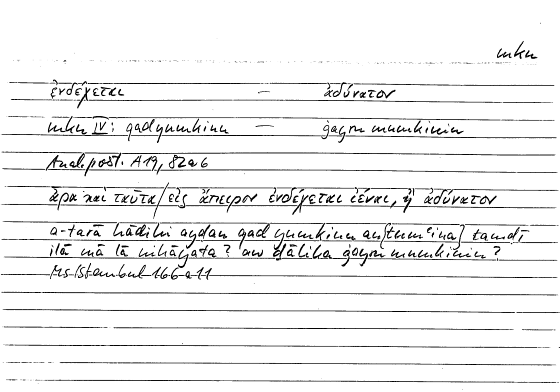 mkn
ἐνδέχεται — ἀδύνατον
mkn IV: qad yumkinu — ġayru mumkinin
Anal. post. A 19, 82a6
ἆρα καὶ ταῦτα/εἰς ἄπειρον ἐνδέχεται ἰέναι, ἢ ἀδύνατον
a-tarā hāḏihi ayḍan qad yumkinu an tamḍī
ilā mā lā nihāyata? aw ḏālika ġayru mumkinin?
Ms Istanbul 166a11